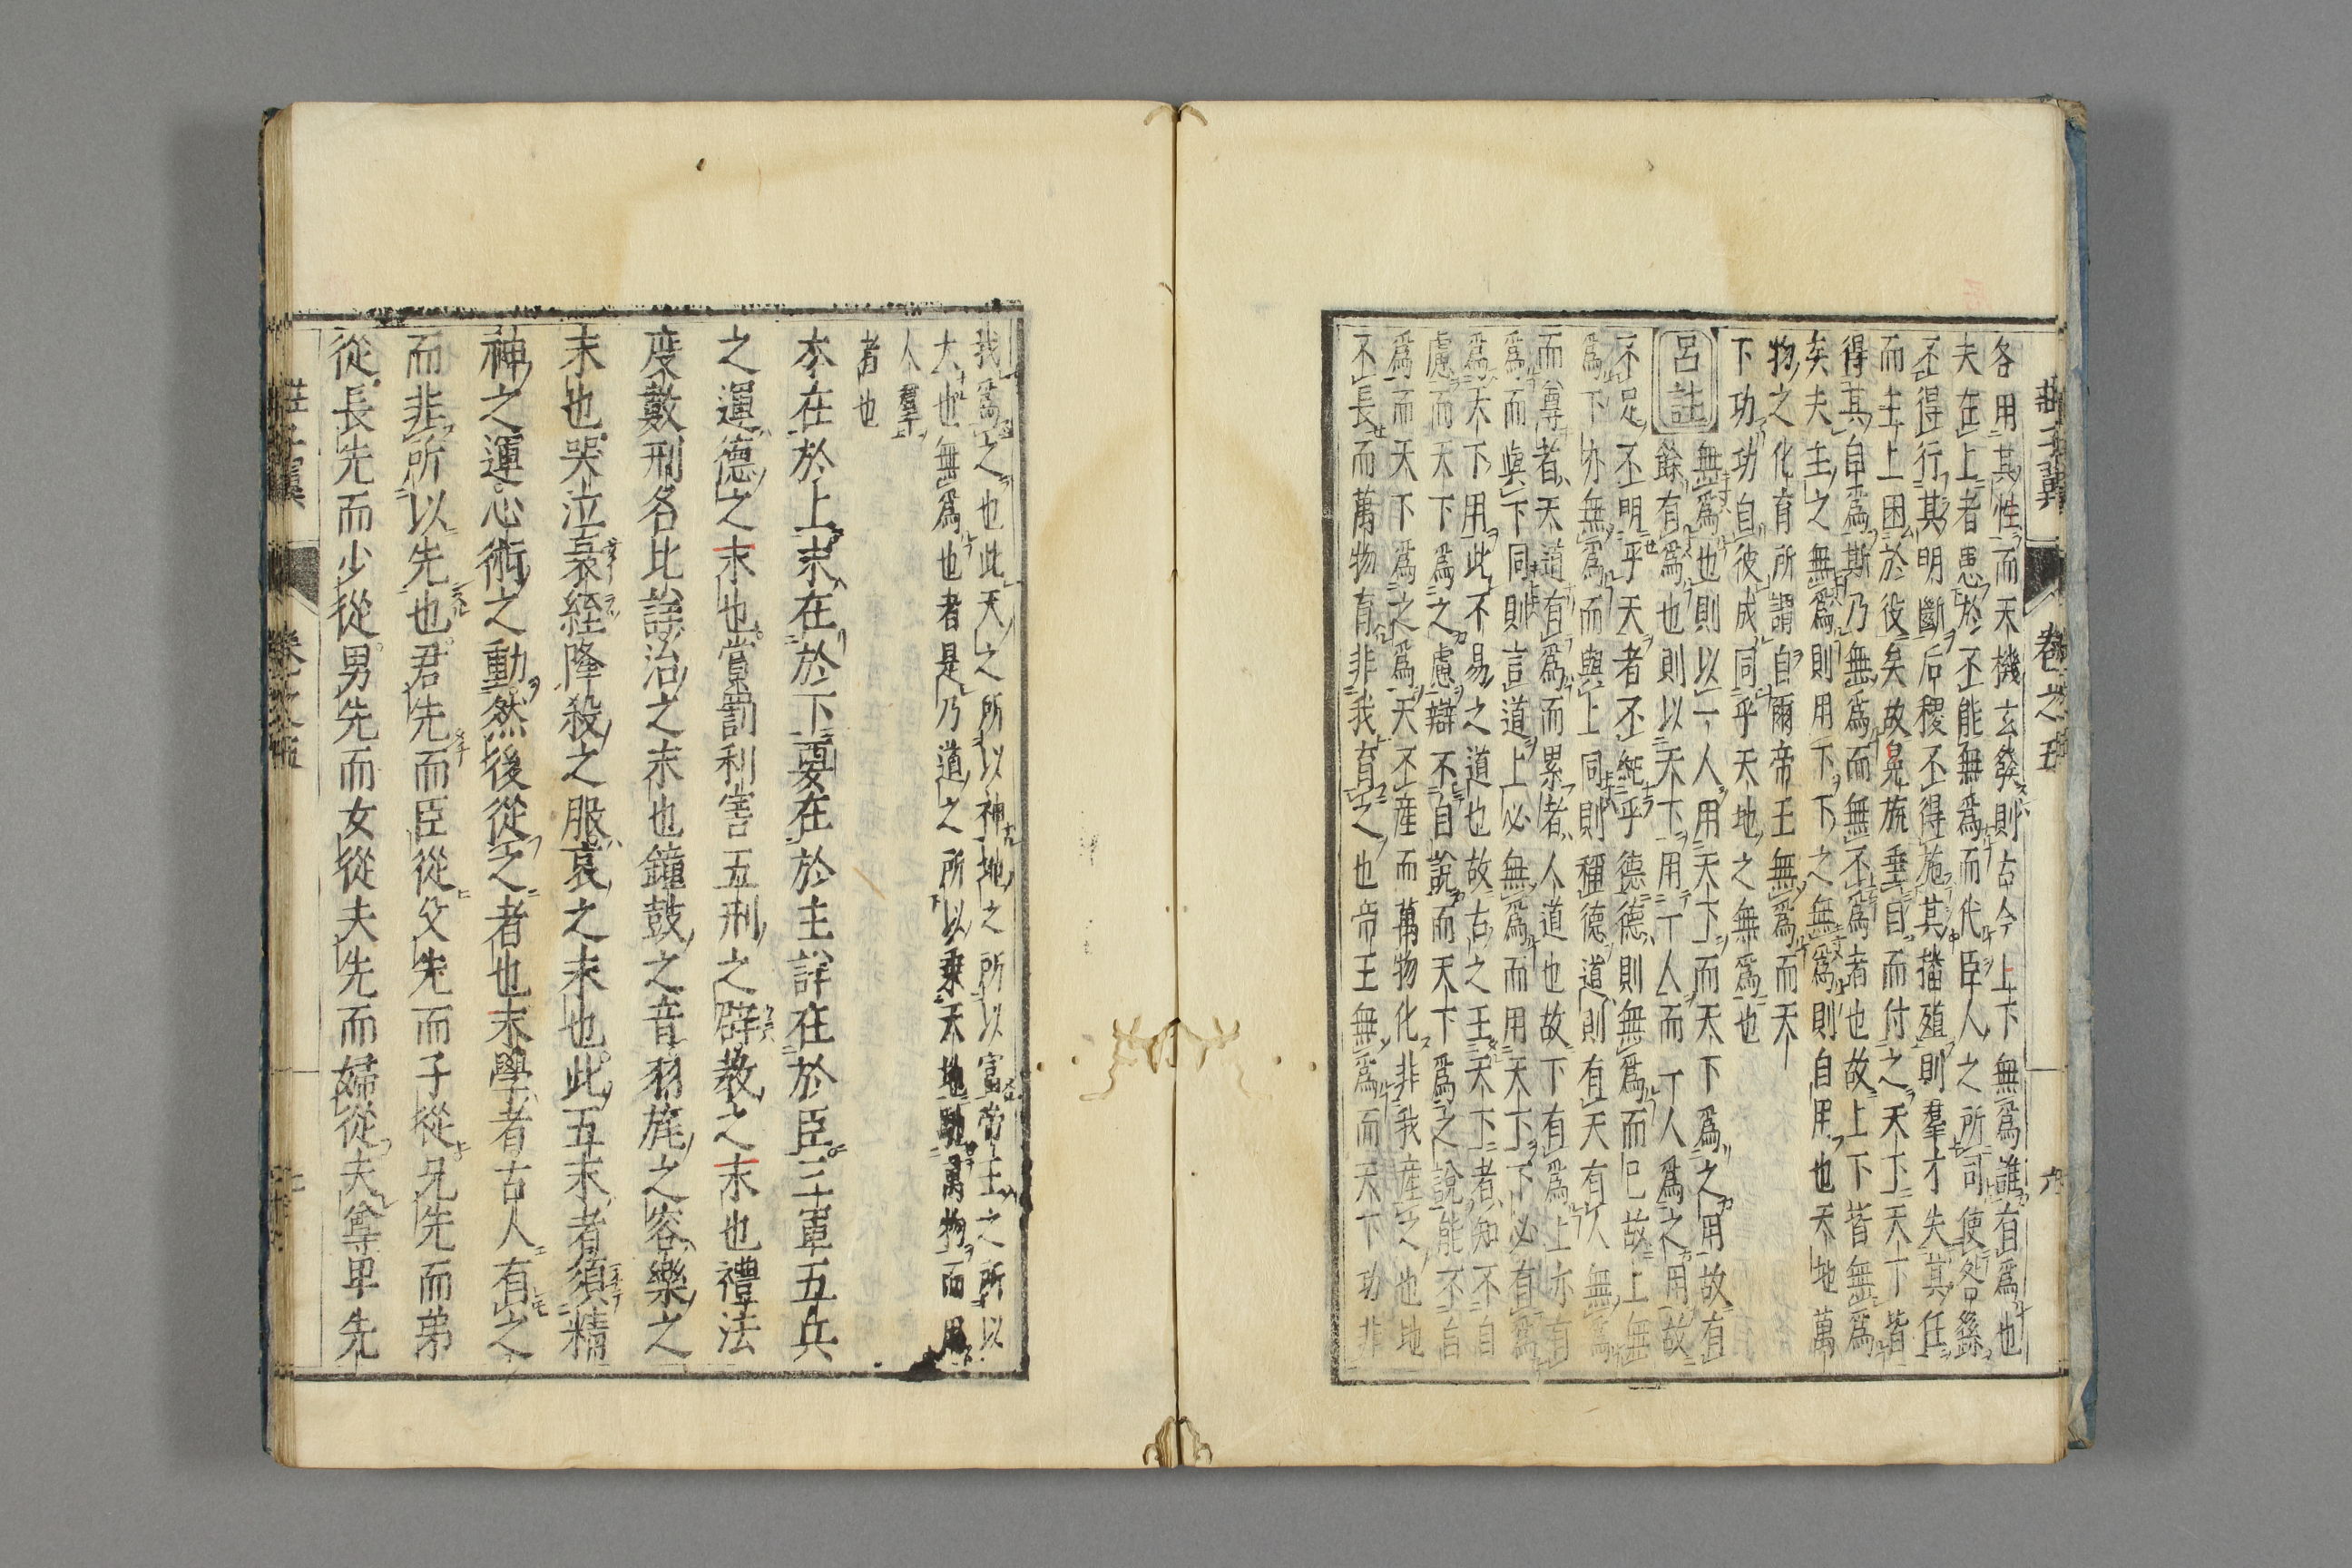 莊子翼 卷之五 六
各用其性而天機玄發則古今上下無爲誰有爲也
夫在上者患於不能無爲而代臣人之所司使咎繇
不得行其明斷后稷不得施其播殖則羣才失其任
而主上困於役矣故冕旒垂目而付之天下天下皆
得其自爲斯乃無爲而無不爲者也故上下皆無爲
矣夫主之無爲則用下下之無爲則自用也天地萬
物之化育所謂自爾帝王無爲而天
下功功自彼成同乎天地之無爲也
呂註 無爲也則以一人用天下而天下爲之用故有
餘有爲也則以天下用一人而一人爲之用故
不足不明乎天者不純乎德德則無爲而已故上無
爲下亦無爲而與上同則種德道則有天有人無爲
而尊者天道有爲而累者人道也故下有爲上亦有
爲而與下同則言道上必無爲而用天下下必有爲
爲天下用此不易之道也故古之王天下者知不自
慮而天下爲之慮辯不自說而天下爲之說能不自
爲而天下爲之爲天不產而萬物化非我產之也地
不長而萬物育非我育之也帝王無爲而天下功非
我爲之也此天之所以神地之所以富帝王之所以
大也無爲也者是乃道之所以乘天地馳萬物而用
人羣
者也
本在於上末在於下要在於主詳在於臣三軍五兵
之運德之末也賞罰利害五刑之辟教之末也禮法
度數刑名比詳治之末也鐘鼓之音羽旄之容樂之
末也哭泣衰絰隆殺之服哀之末也此五末者須精
神之運心術之動然後從之者也末學者古人有之
而非所以先也君先而臣從父先而子從兄先而弟
從長先而少從男先而女從夫先而婦從夫尊卑先
莊子翼 卷之五